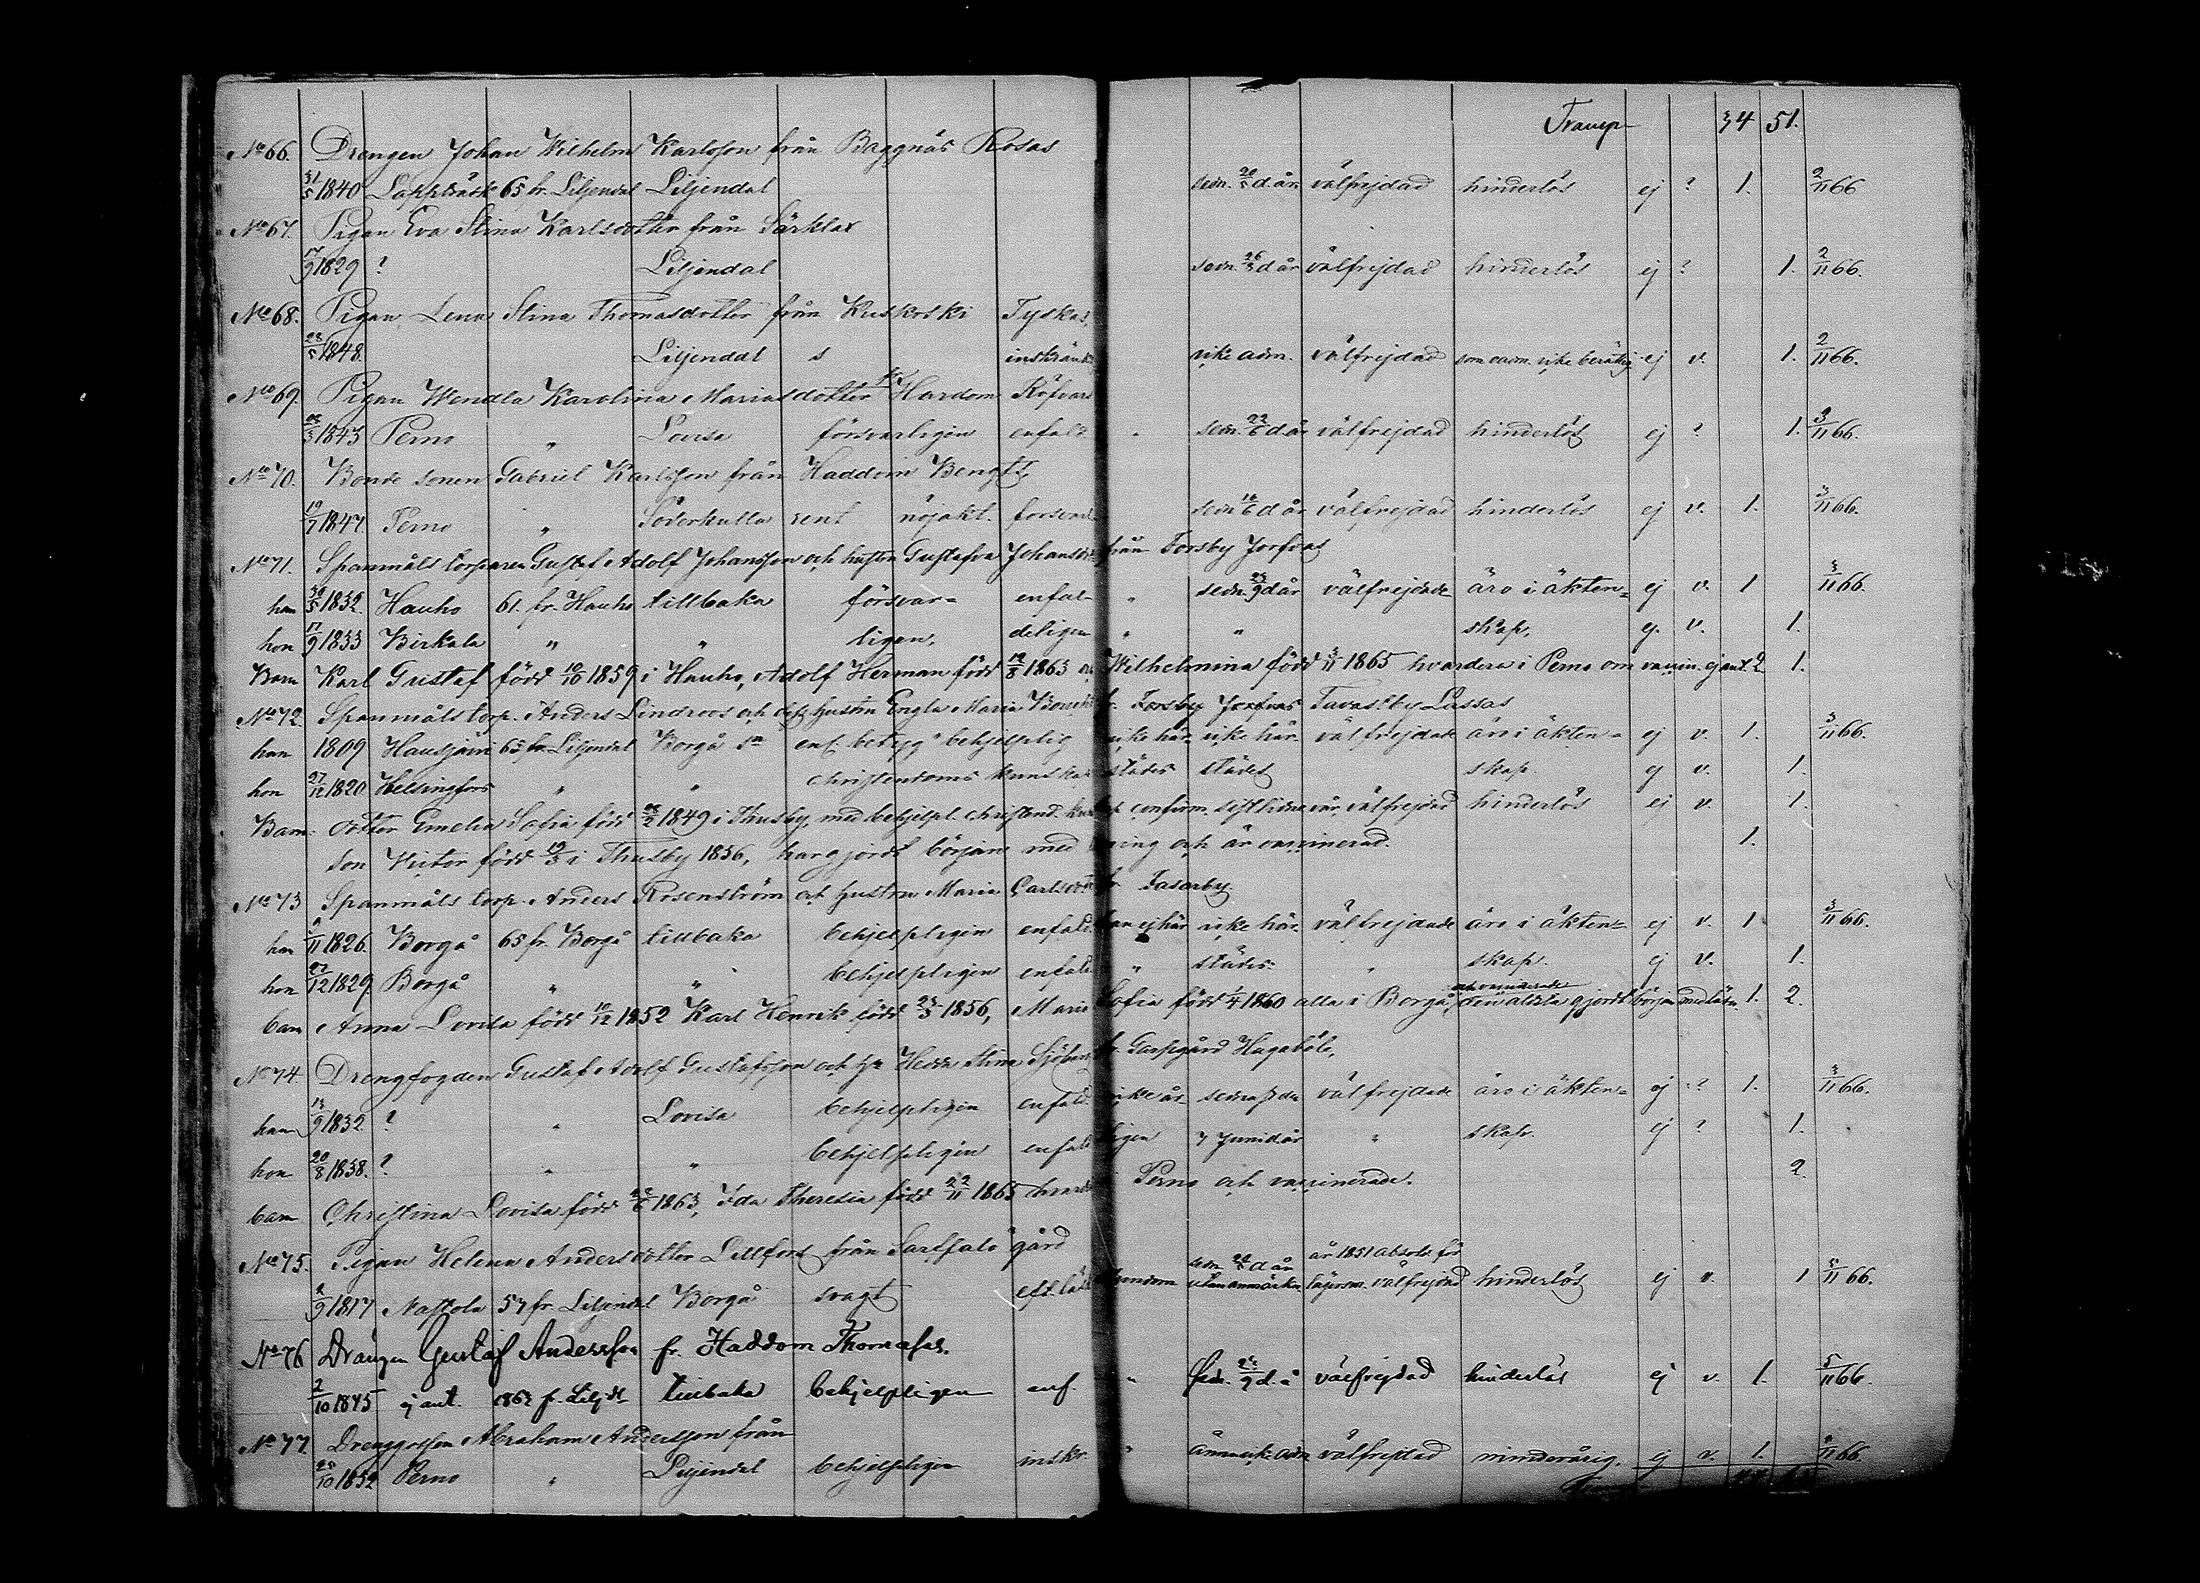 Transp 34 51.
No 66. Drengen Johan Wilhelm Karlsson från Baggnäs Rosas
31/5 1840 Lappträsk 65 fr. Liljendal Liljendal sedn. 20/5 d. år välfrejdad hinderlös ej ? 1. 2/11 66
No 67. Pigan Eva Stina Karlsdotter från Särklax
17/9 1829 ? Liljendal sedn. 26/3 d år välfrejdad hinderlös ej ? 1. 2/11 66.
No 68. Pigan Lena Stina Thomasdotter från Kuskoski Tyskas,
28/5 1848. Liljendal s inskränkt icke adm. välfrejdad som oadm. icke berättig. ej v. 1. 2/11 66.
No 69. Pigan Wendla Karolina Mariasdotter fr Hardom Röfvars
1843 Perno " Lovisa försvarligen enfald. " sedn. 22/6 d. år välfrejdad hinderlös ej ? 1. 3/11 66.
No 70. Bonde sonen Gabriel Karlsson från Haddom Bengts,
19/7 1847 Perno " Söderkulla rent nöjakt. forsvarl. sedn. d år välfrejdad hinderlös ej v. 1. 3/11 66.
No 71. Spanmåls torparen Gustaf Adolf Johansson och hustru Gustafva Johansdr från Forsby Jorfvas
han 30/5 1832 Hauho 61. fr. Hauho tillbaka försvar= enfal- " sedn. 23/9 d år välfrejdade äro i äkten= ej v. 1 3/11 66.
hon 17/9 1833 Birkala " " ligen, deligen " " skap, ej. v. 1.
Barn Karl Gustaf född 10/10 1859 i Hauho, Adolf Herman född 19/8 1863 och Wilhelmina född 3/11 1865 hvardera i Perno om vaccin. ej ant. 2 1.
No 72. Spanmåls torp. Anders Lindroos och dess hustru Engla Maria fr. Forsby Jorfvas Tavastby Lassas
han 1809 Hausjärvi 65 fr. Liljendal Borgå sn enl. betyg behjelplig icke här- icke här- välfrejdade äro i äkten- ej v. 1. 3/11 66.
hon 27/12 1820 Helsingfors " " christendoms kunskap städes städes skap. ej v. 1.
Barn: dotter Emelia Sofia född 1849 i Thusby, med behjelpl. christend. kunskap confirm. sistlidne vår, välfrejdad hinderlös ej v. 1.
son Victor född 19/3 i Thusby 1856, har gjordt början med läsning och är vaccinerad. 1.
No 73 Spanmåls torp. Anders Rosenström och hustru Maria Carlsdotter fr. Tasarby.
han 1826. Borgå 65 fr. Borgå tillbaka behjelpligen enfald. ej här icke här- välfrejdade äro i äkten= ej v. 1 3/11 66.
hon 27/12 1829. Borgå " " behjelpligen enfald. " städes. " skap. ej v. 1.
barn Anna Lovisa född 10/12 1852 Karl Henrik född 23/3 1856, Maria Sofia född 1/4 1860 alla i Borgå, och vaccinerade den äldsta gjordt början med läsn. 1. 2.
No 74. Drengfogden Gustaf Adolf Gustafsson och h:u Hedda Stina Sjöberg fr. Garpgård Hagaböle,
han 13/9 1832. ? " Lovisa behjelpligen enfald icke år- sedna sista välfrejdade äro i äkten= ej ? 1. 3/11 66.
hon 20/8 1838. ? " " behjelpligen enfald ligen 7 Juni d. år " skap. ej ? 1.
barn Christina Lovisa född 1863, Ida Theresia född 22/11 1865 hvardera Perno och vaccinerade. 2.
No 75. Pigan Helena Andersdotter Lillfors från Sarfsalö gård
1817 Nastola 57 fr. Liljendal Borgå svagt sedn. d. år utan anmärkn. är 1851 absolv. för lägersm. välfrejdad hinderlös ej v. 1 5/11 66.
No 76 Drängen Gustaf Andersson fr. Haddom Thomasas.
2/10 1845 ej ant. 1862 f. Liljdl tillbaka behjelpligen enf. " sedn. 23/9 d. å välfrejdad hinderlös ej v. 1. 5/11 66.
No 77. Drenggossen Abraham Andersson från
25/10 1852 Perno " Liljendal behjelpligen inskr. " ännu icke adm välfrejdad minderårig. ej v. 1. 5/11 66.